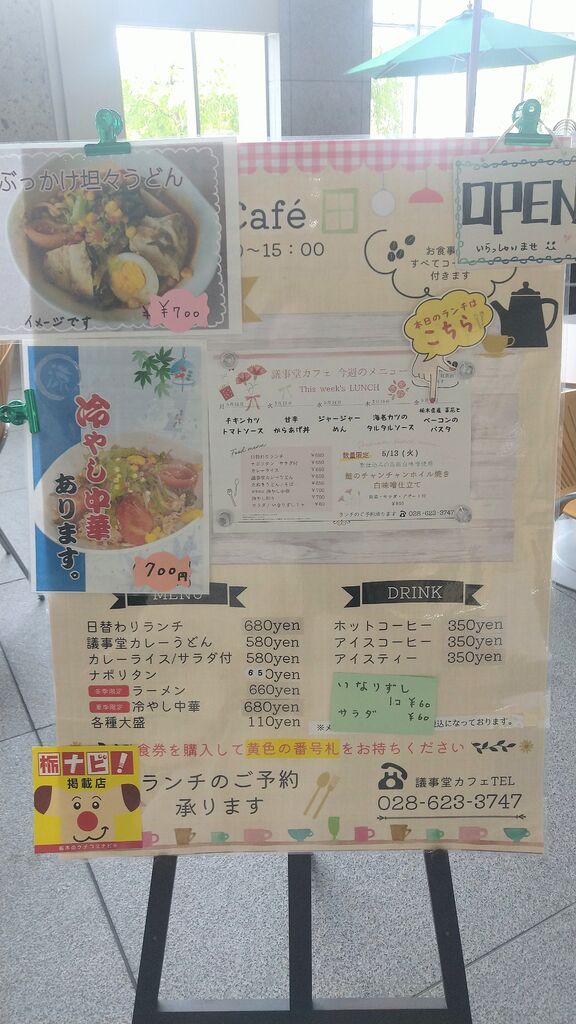 ぶっかけ坦々うどん
¥700
イメージです
Café
～15：00
OPEN
いらっしゃいませ
お食事
すべてコー
付きます
本日のランチは
こちら
冷やし中華
あります。
700円
議事堂カフェ 今週のメニュー
This week's LUNCH
チキンカツ
トマトソース
甘辛
からあげ丼
ジャージャー
めん
海老カツの
タルタルソース
ベーコンの
パスタ
Food menu
数量限定 5/13（火）
鮭のチャンチャンホイル焼き
白味噌仕立て
ランチのご予約承ります
028-623-3747
MENU
日替わりランチ 680yen
議事堂カレーうどん 580yen
カレーライス/サラダ付 580yen
ナポリタン 650yen
冬季限定 ラーメン 660yen
夏季限定 冷やし中華 680yen
各種大盛 110yen
DRINK
ホットコーヒー 350yen
アイスコーヒー 350yen
アイスティー 350yen
いなりずし
1コ ¥60
サラダ ¥60
税込になっております。
食券を購入して黄色の番号札をお持ちください
栃ナビ！
掲載店
ランチのご予約
承ります
議事堂カフェTEL
028-623-3747